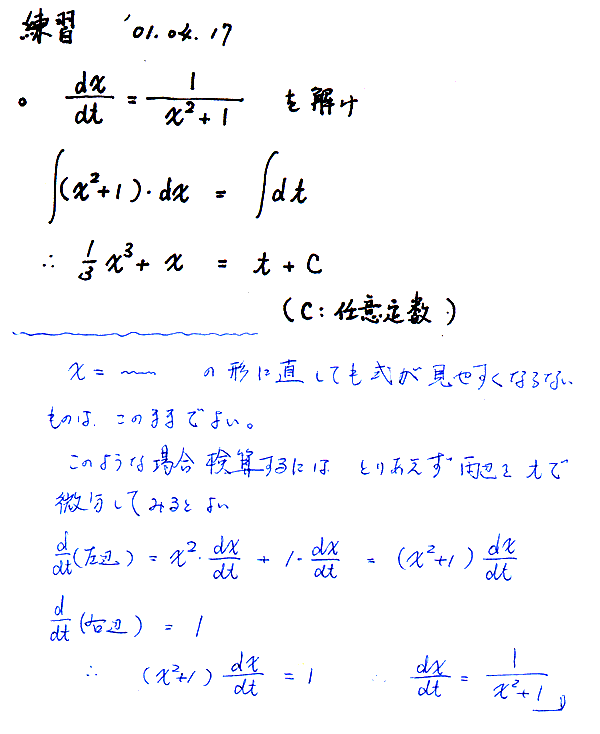 練習 '01.04.17
。 dx/dt = 1/(x²+1) を解け
∫(x²+1)・dx = ∫dt
∴ 1/3 x³ + x = t + C
(C:任意定数)
x = 〰 の形に直しても式が見やすくならない
ものは、このままでよい。
このような場合 検算するには とりあえず 両辺を tで
微分してみるとよい
d/dt(左辺) = x²・dx/dt + 1・dx/dt = (x²+1) dx/dt
d/dt(右辺) = 1
∴ (x²+1) dx/dt = 1 ∴ dx/dt = 1/(x²+1)